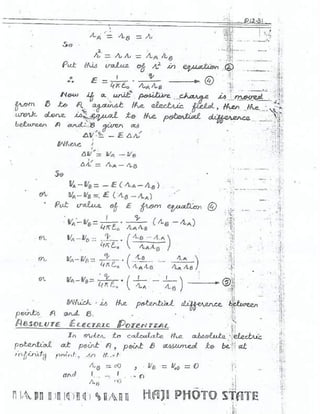 P12-31
r_A = r_B = r
So
r² = r r = r_A r_B
Put this value of r² in equation ③
∴ E = 1/4πε₀ q/r_A r_B → ④
Now if a unit positive charge is moved
from B to A against the electric field, then the
work done is equal to the potential difference
between A and B given as
ΔV = - E Δr
Where
ΔV = V_A - V_B
Δr = r_A - r_B
So
V_A - V_B = - E (r_A - r_B)
or V_A - V_B = E (r_B - r_A)
Put value of E from equation ④
V_A - V_B = 1/4πε₀ · q/r_A r_B (r_B - r_A)
or V_A - V_B = q/4πε₀ · (r_B - r_A / r_A r_B)
or V_A - V_B = q/4πε₀ · (r_B/r_A r_B - r_A/r_A r_B)
or V_A - V_B = q/4πε₀ · (1/r_A - 1/r_B) → ⑤
Which is the potential difference between
points A and B.
ABSOLUTE ELECTRIC POTENTIAL
In order to calculate the absolute electric
potential at point A, point B assumed to be at
infinity point, so that
r_B = ∞ , V_B = V_∞ = 0
and 1/r_B = 1/∞ = 0
HAJI PHOTO STATE